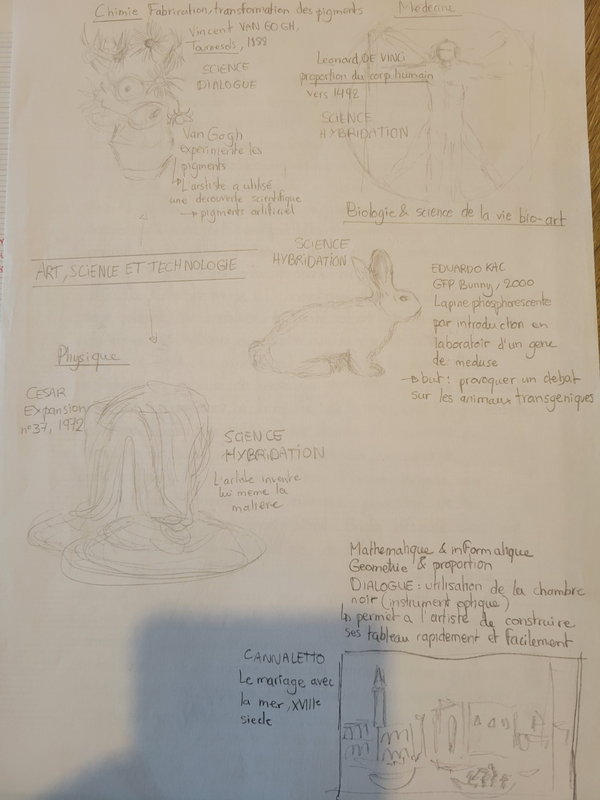 Chimie Fabrication, transformation des pigments
Vincent VAN GOGH,
Tournesols, 1888
SCIENCE
DIALOGUE
Van Gogh
experimente les
pigments
L'artiste a utilisé
une decouverte scientifique
→ pigments artificiel
Medecine
Leonard DE VINCI
proportion du corp humain
vers 1492
SCIENCE
HYBRIDATION
Biologie & science de la vie bio-art
ART, SCIENCE ET TECHNOLOGIE
SCIENCE
HYBRIDATION
EDUARDO KAC
GFP Bunny, 2000
Lapine phosphorescente
par introduction en
laboratoir d'un gene
de meduse
→ but: provoquer un debat
sur les animaux transgeniques
Physique
CESAR
Expansion
n°37, 1972
SCIENCE
HYBRIDATION
L'artiste invente
lui meme la
matière
Mathematique & informatique
Geometrie & proportion
DIALOGUE: utilisation de la chambre
noir (instrument optique)
↳ permet a l'artiste de construire
ses tableau rapidement et facilement
CANNALETTO
Le mariage avec
la mer, XVIIIe
siecle